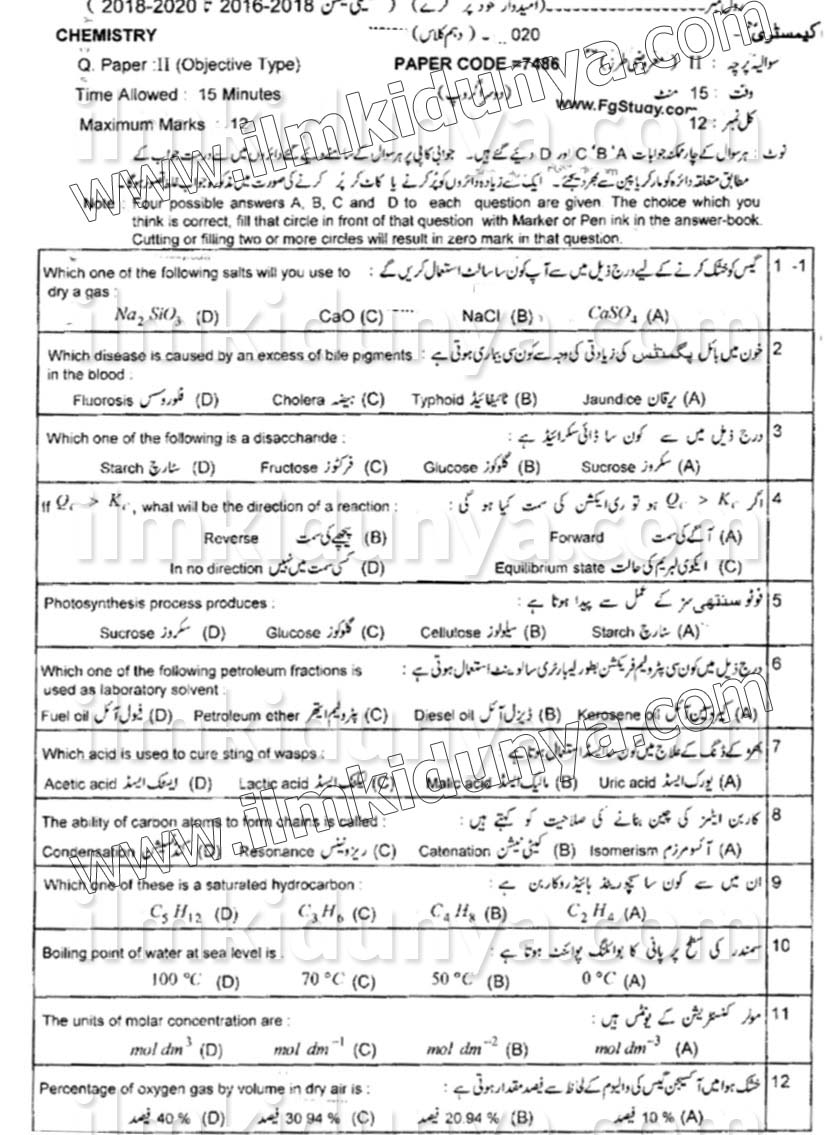 ( 2018-2020 تا 2016-2018
CHEMISTRY 020 ۔ (دہم کلاس) کیمسٹری
Q. Paper :II (Objective Type) PAPER CODE =7486 سوالیہ پرچہ : II
Time Allowed : 15 Minutes (دوسرا گروپ) وقت : 15 منٹ
www.FgStudy.com
Maximum Marks : 12 کل نمبر : 12
نوٹ : ہر سوال کے چار ممکنہ جوابات A ،B ،C اور D دیئے گئے ہیں۔ جوابی کاپی پر ہر سوال کے سامنے دیئے گئے دائروں میں سے درست جواب کے
مطابق متعلقہ دائرہ کو مارکر یا پین سے بھر دیجئے۔ ایک سے زیادہ دائروں کو پُر کرنے یا کاٹ کر پُر کرنے کی صورت میں مذکورہ جواب غلط تصور ہوگا۔
Note : Four possible answers A, B, C and D to each question are given. The choice which you
think is correct, fill that circle in front of that question with Marker or Pen ink in the answer-book.
Cutting or filling two or more circles will result in zero mark in that question.
Which one of the following salts will you use to گیس کو خشک کرنے کے لیے درج ذیل میں سے آپ کون سا سالٹ استعمال کریں گے : 1 -1
dry a gas :
Na₂SiO₃ (D) CaO (C) NaCl (B) CaSO₄ (A)
Which disease is caused by an excess of bile pigments خون میں بائل پگمنٹس کی زیادتی کی وجہ سے کون سی بیماری ہوتی ہے : 2
in the blood :
Fluorosis فلوروسس (D) Cholera ہیضہ (C) Typhoid ٹائیفائیڈ (B) Jaundice یرقان (A)
Which one of the following is a disaccharide : درج ذیل میں سے کون سا ڈائی سکرائیڈ ہے : 3
Starch سٹارچ (D) Fructose فرکٹوز (C) Glucose گلوکوز (B) Sucrose سکروز (A)
If Qc > Kc, what will be the direction of a reaction : اگر Qc > Kc ہو تو ری ایکشن کی سمت کیا ہو گی : 4
Reverse پیچھے کی سمت (B) Forward آگے کی سمت (A)
In no direction کسی سمت میں نہیں (D) Equilibrium state ایکوی لبریم کی حالت (C)
Photosynthesis process produces : فوٹو سنتھی سز کے عمل سے پیدا ہوتا ہے : 5
Sucrose سکروز (D) Glucose گلوکوز (C) Cellulose سیلولوز (B) Starch سٹارچ (A)
Which one of the following petroleum fractions is درج ذیل میں کون سی پٹرولیم فریکشن بطور لیبارٹری سالوینٹ استعمال ہوتی ہے : 6
used as laboratory solvent :
Fuel oil فیول آئل (D) Petroleum ether پٹرولیم ایتھر (C) Diesel oil ڈیزل آئل (B) Kerosene oil کیروسین آئل (A)
Which acid is used to cure sting of wasps : بھڑ کے ڈنگ کے علاج میں کون سا ایسڈ استعمال ہوتا ہے 7
Acetic acid ایسٹک ایسڈ (D) Lactic acid لیکٹک ایسڈ (C) Malic acid مالیک ایسڈ (B) Uric acid یورک ایسڈ (A)
The ability of carbon atoms to form chains is called : کاربن ایٹمز کی چین بنانے کی صلاحیت کو کہتے ہیں : 8
Condensation کنڈنسیشن (D) Resonance ریزونینس (C) Catenation کیٹی نیشن (B) Isomerism آئسومرزم (A)
Which one of these is a saturated hydrocarbon : ان میں سے کون سا سیچوریٹڈ ہائیڈروکاربن ہے : 9
C₅H₁₂ (D) C₃H₆ (C) C₄H₈ (B) C₂H₄ (A)
Boiling point of water at sea level is : سمندر کی سطح پر پانی کا بوائلنگ پوائنٹ ہوتا ہے : 10
100 °C (D) 70 °C (C) 50 °C (B) 0 °C (A)
The units of molar concentration are : مولر کنسنٹریشن کے یونٹس ہیں : 11
mol dm³ (D) mol dm⁻¹ (C) mol dm⁻² (B) mol dm⁻³ (A)
Percentage of oxygen gas by volume in dry air is : خشک ہوا میں آکسیجن گیس کی والیوم کے لحاظ سے فیصد مقدار ہوتی ہے : 12
40 % فیصد (D) 30.94 % فیصد (C) 20.94 % فیصد (B) 10 % فیصد (A)
www.ilmkidunya.com
www.ilmkidunya.com
ilmkidunya.com
ilmkidunya.com
ilmkidunya.com
ilmkidunya.com
ilmkidunya.com
ilmkidunya.com